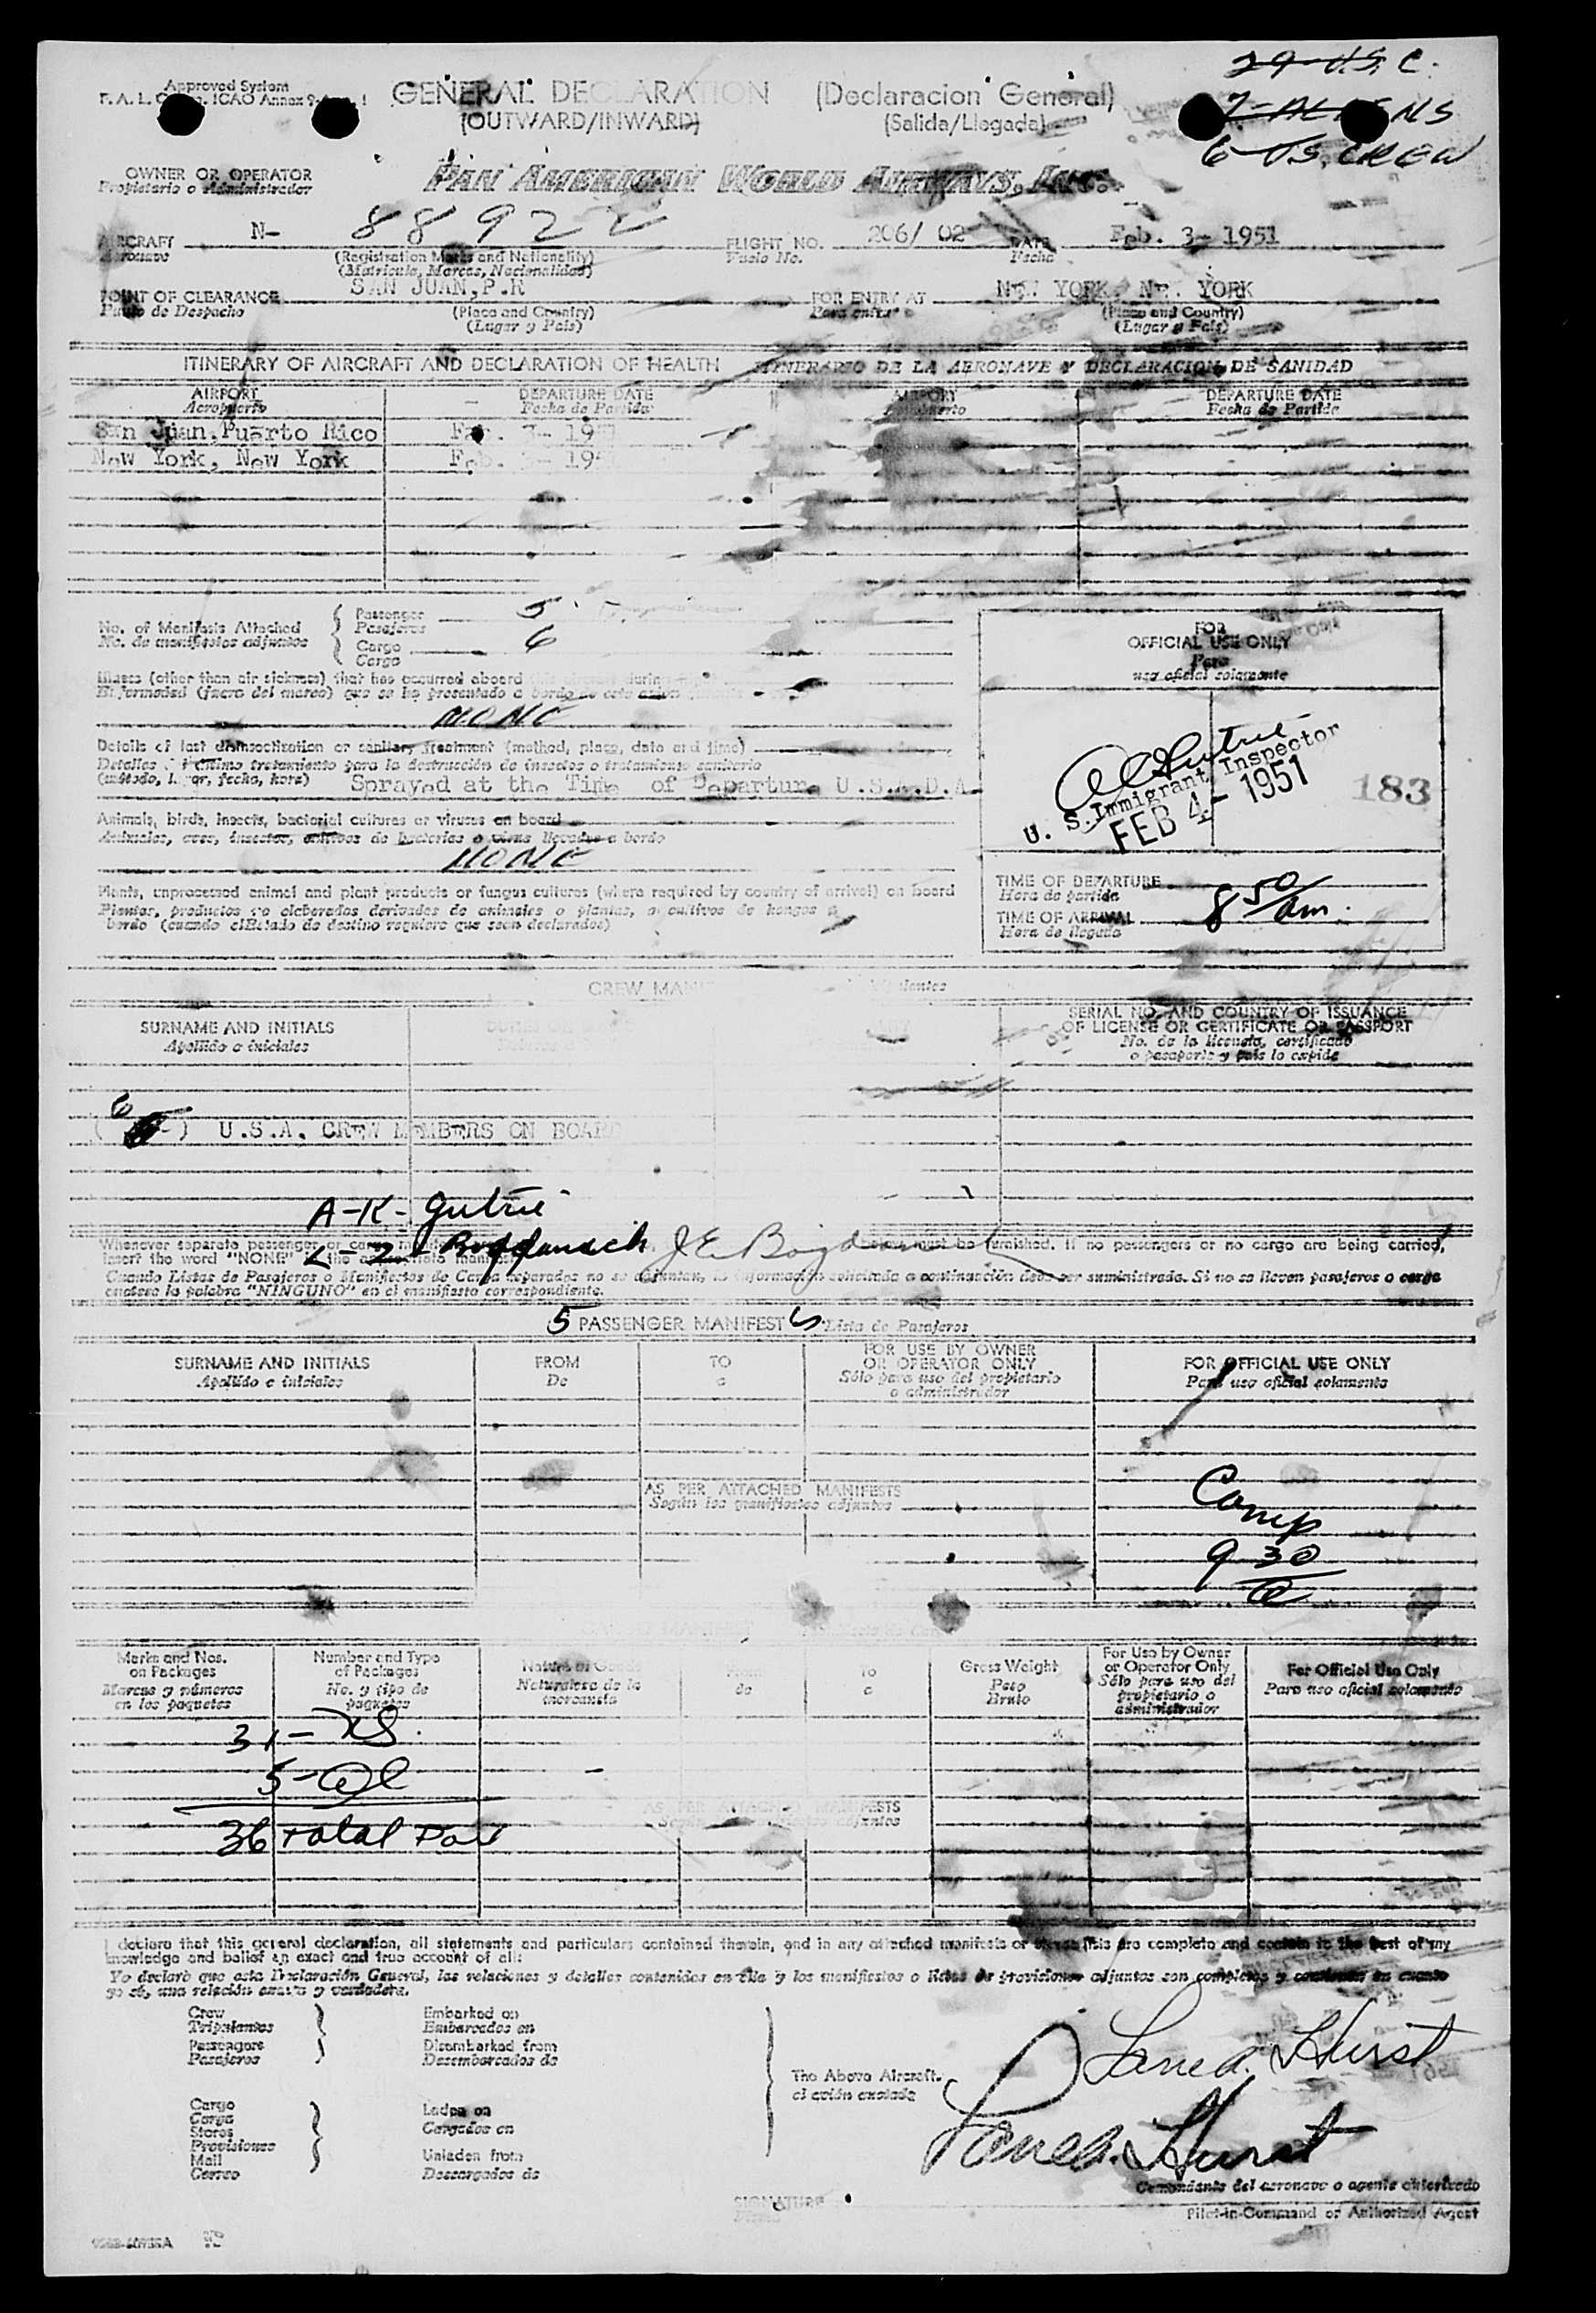 29-U.S.C.
7-ALIENS
6-U.S. CREW
Approved System
F. A. L. ICAO Annex 9
GENERAL DECLARATION (Declaracion General)
(OUTWARD/INWARD) (Salida/Llegada)
OWNER OR OPERATOR PAN AMERICAN WORLD AIRWAYS, INC.
Propietario o Administrador
AIRCRAFT N- 88922 FLIGHT NO. 206/ 02 DATE Feb. 3- 1951
Aeronave (Registration Marks and Nationality) Vuelo No. Fecha
(Matricula, Marcas, Nacionalidad)
POINT OF CLEARANCE SAN JUAN,P.R FOR ENTRY AT NEW YORK, NEW YORK
Punto de Despacho (Place and Country) Para entrar a (Place and Country)
(Lugar y Pais) (Lugar y Pais)
ITINERARY OF AIRCRAFT AND DECLARATION OF HEALTH ITINERARIO DE LA AERONAVE Y DECLARACION DE SANIDAD
AIRPORT DEPARTURE DATE AIRPORT DEPARTURE DATE
Aeropuerto Fecha de Partida Aeropuerto Fecha de Partida
San Juan, Puerto Rico
New York, New York Feb.
No. of Manifests Attached Passenger 5
No. de manifiestos adjuntos Pasajeros
Cargo 6
Cargo
FOR
OFFICIAL USE ONLY
Para
uso oficial solamente
Illness (other than air sickness) that has occurred aboard during
Enfermedad (fuera del mareo) que se ha presentado a bordo de este avion
NONE
Details of last disinsectization or sanitary treatment (method, place, date and time)
Detalles último tratamiento para la destrucción de insectos o tratamiento sanitario
(método, lugar, fecha, hora) Sprayed at the Time of Departure U.S.A.D.A.
U. S. Immigrant Inspector
FEB 4- 1951
183
Animals, birds, insects, bacterial cultures or viruses on board
Animales, aves, insectos, cultivos de bacterias o virus llevados a bordo
NONE
Plants, unprocessed animal and plant products or fungus cultures (where required by country of arrival) on board
Plantas, productos no elaborados derivados de animales o plantas, o cultivos de hongos a
bordo (cuando el Estado de destino requiera que sean declarados)
TIME OF DEPARTURE
Hora de partida
TIME OF ARRIVAL 8 50/am.
Hora de llegada
CREW
SURNAME AND INITIALS
Apellido e iniciales
SERIAL NO. AND COUNTRY OF ISSUANCE
OF LICENSE OR CERTIFICATE OR PASSPORT
No. de la licencia, certificado
o pasaporte y pais lo expide
( 6 ) U.S.A. CREW MEMBERS ON BOARD
A-K- Gutrie
must be furnished. If no passengers or no cargo are being carried,
insert the word "NONE"
Cuando Listas de Pasajeros o Manifiestos de Carga separados no se adjuntan, la información solicitada a continuación debe ser suministrada. Si no se llevan pasajeros o carga
la palabra "NINGUNO" en el manifiesto correspondiente.
5 PASSENGER MANIFEST Lista de Pasajeros
SURNAME AND INITIALS FROM TO FOR USE BY OWNER OR OPERATOR ONLY FOR OFFICIAL USE ONLY
Apellido e iniciales De a Sólo para uso del propietario o administrador Para uso oficial solamente
AS PER ATTACHED MANIFESTS
Según los manifiestos adjuntos
Comp
9 30
CARGO MANIFEST
Marks and Nos. on Packages Number and Type of Packages Nature of Goods From To Gross Weight For Use by Owner or Operator Only For Official Use Only
Marcas y números en los paquetes No. y tipo de paquetes Naturaleza de la mercancía de a Peso Bruto Sólo para uso del propietario o administrador Para uso oficial solamente
31-
5-
36 Total
AS PER ATTACHED MANIFESTS
I declare that this general declaration, all statements and particulars contained therein, and in any attached manifests or lists are complete and contain to the best of my
knowledge and belief an exact and true account of all:
Yo declaro que esta Declaración General, las relaciones y detalles contenidos en ella y los manifiestos o listas de provisiones adjuntos son completos y contienen en cuanto
yo sé, una relación exacta y verdadera.
Crew Embarked on
Tripulantes Embarcados en
Passengers Disembarked from
Pasajeros Desembarcados de
The Above Aircraft.
Cargo Laden on
Carga Cargados en
Stores
Provisiones
Mail Unladen from
Correo Descargados de
Lane A. Hurst
Lane A. Hurst
Comandante del aeronave o agente autorizado
SIGNATURE
Pilot-in-Command or Authorized Agent